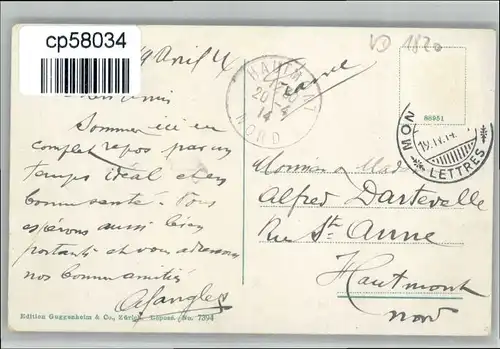 cp58034
1820
19 Avril 14
Chers Amis
HAUTMONT
20-4
14
NORD
88951
MON
19.IV.14.
LETTRES
Sommes ici en
complet repos par un
temps idéal et en
bonne santé. Vous
espérons aussi bien
portants et vous adressons
nos bonnes amitiés
Monsieur et Mad
Alfred Dartevelle
Rue Ste Anne
Hautmont
Nord
Edition Guggenheim & Co., Zürich. Dépose. No. 7394